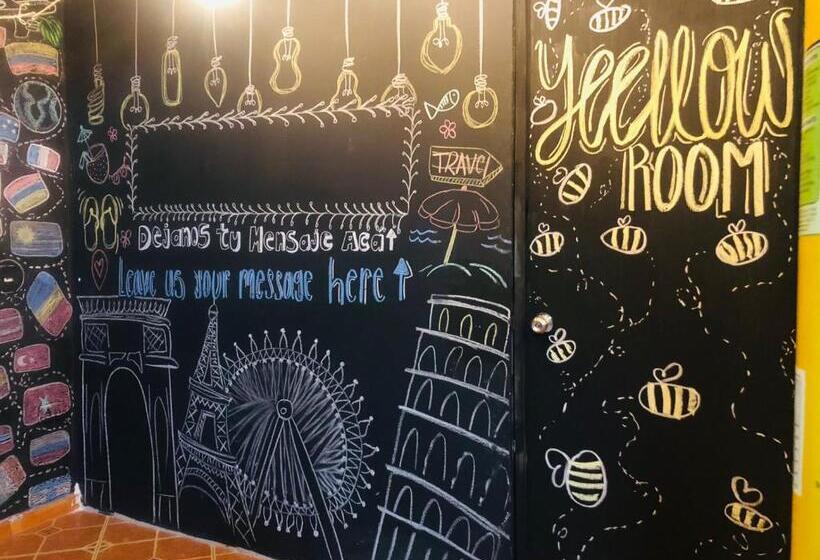 Yeellow
ROOM
TRAVEL
Dejanos tu Mensaje Acá
Leave us your message here